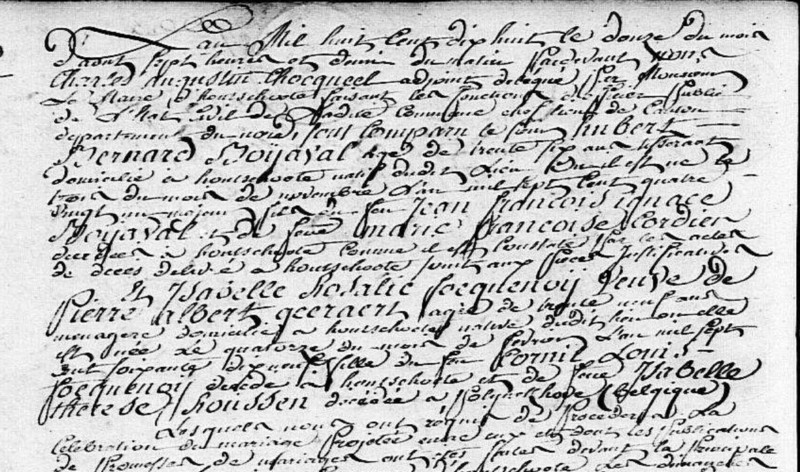 L'an Mil huit Cent dix huit le douze du mois
d'aout sept heures et demi du matin pardevant nous
Charles Augustin Chocqueel adjoint delegué par Monsieur
Le Maire d'hontschoote faisant les fonctions d'officier public
de L'Etat Civil de Ladite Commune chef lieu de Canton
departement du nord, sont Comparu le sieur Imbert
Bernard Boyaval agé de trente six ans tisserant
domicilié a hontschoote natif dudit Lieu ou il est né le
trois du mois de novembre L'an mil sept Cent quatre
vingt un majeur fils de feu Jean francois ignace
Boyaval et de feue marie francoise Cordien
decedés a hontschoote comme il est Constaté par les actes
de deces delivré a hontschoote joint aux pieces justificatives
Et Isabelle Rosalie Socquenoy veuve de
Pierre albert geeraert agée de trente neuf ans
menagere domiciliée a hontschoote native dudit lieu ou elle
est née Le quatorze du mois de Lan mil sept
cent soixante dix neuf fille du feu Cornil Louis
Socquenoy decedé a hontschoote et de feue Isabelle
therese Roussen decedée a (Belgique)
Lesquels nous ont requis de proceder a La
Celebration du mariage projetée entre eux et dont les publications
de promesses de mariages ont été faites devant la principale
hontschoote Le dimanche